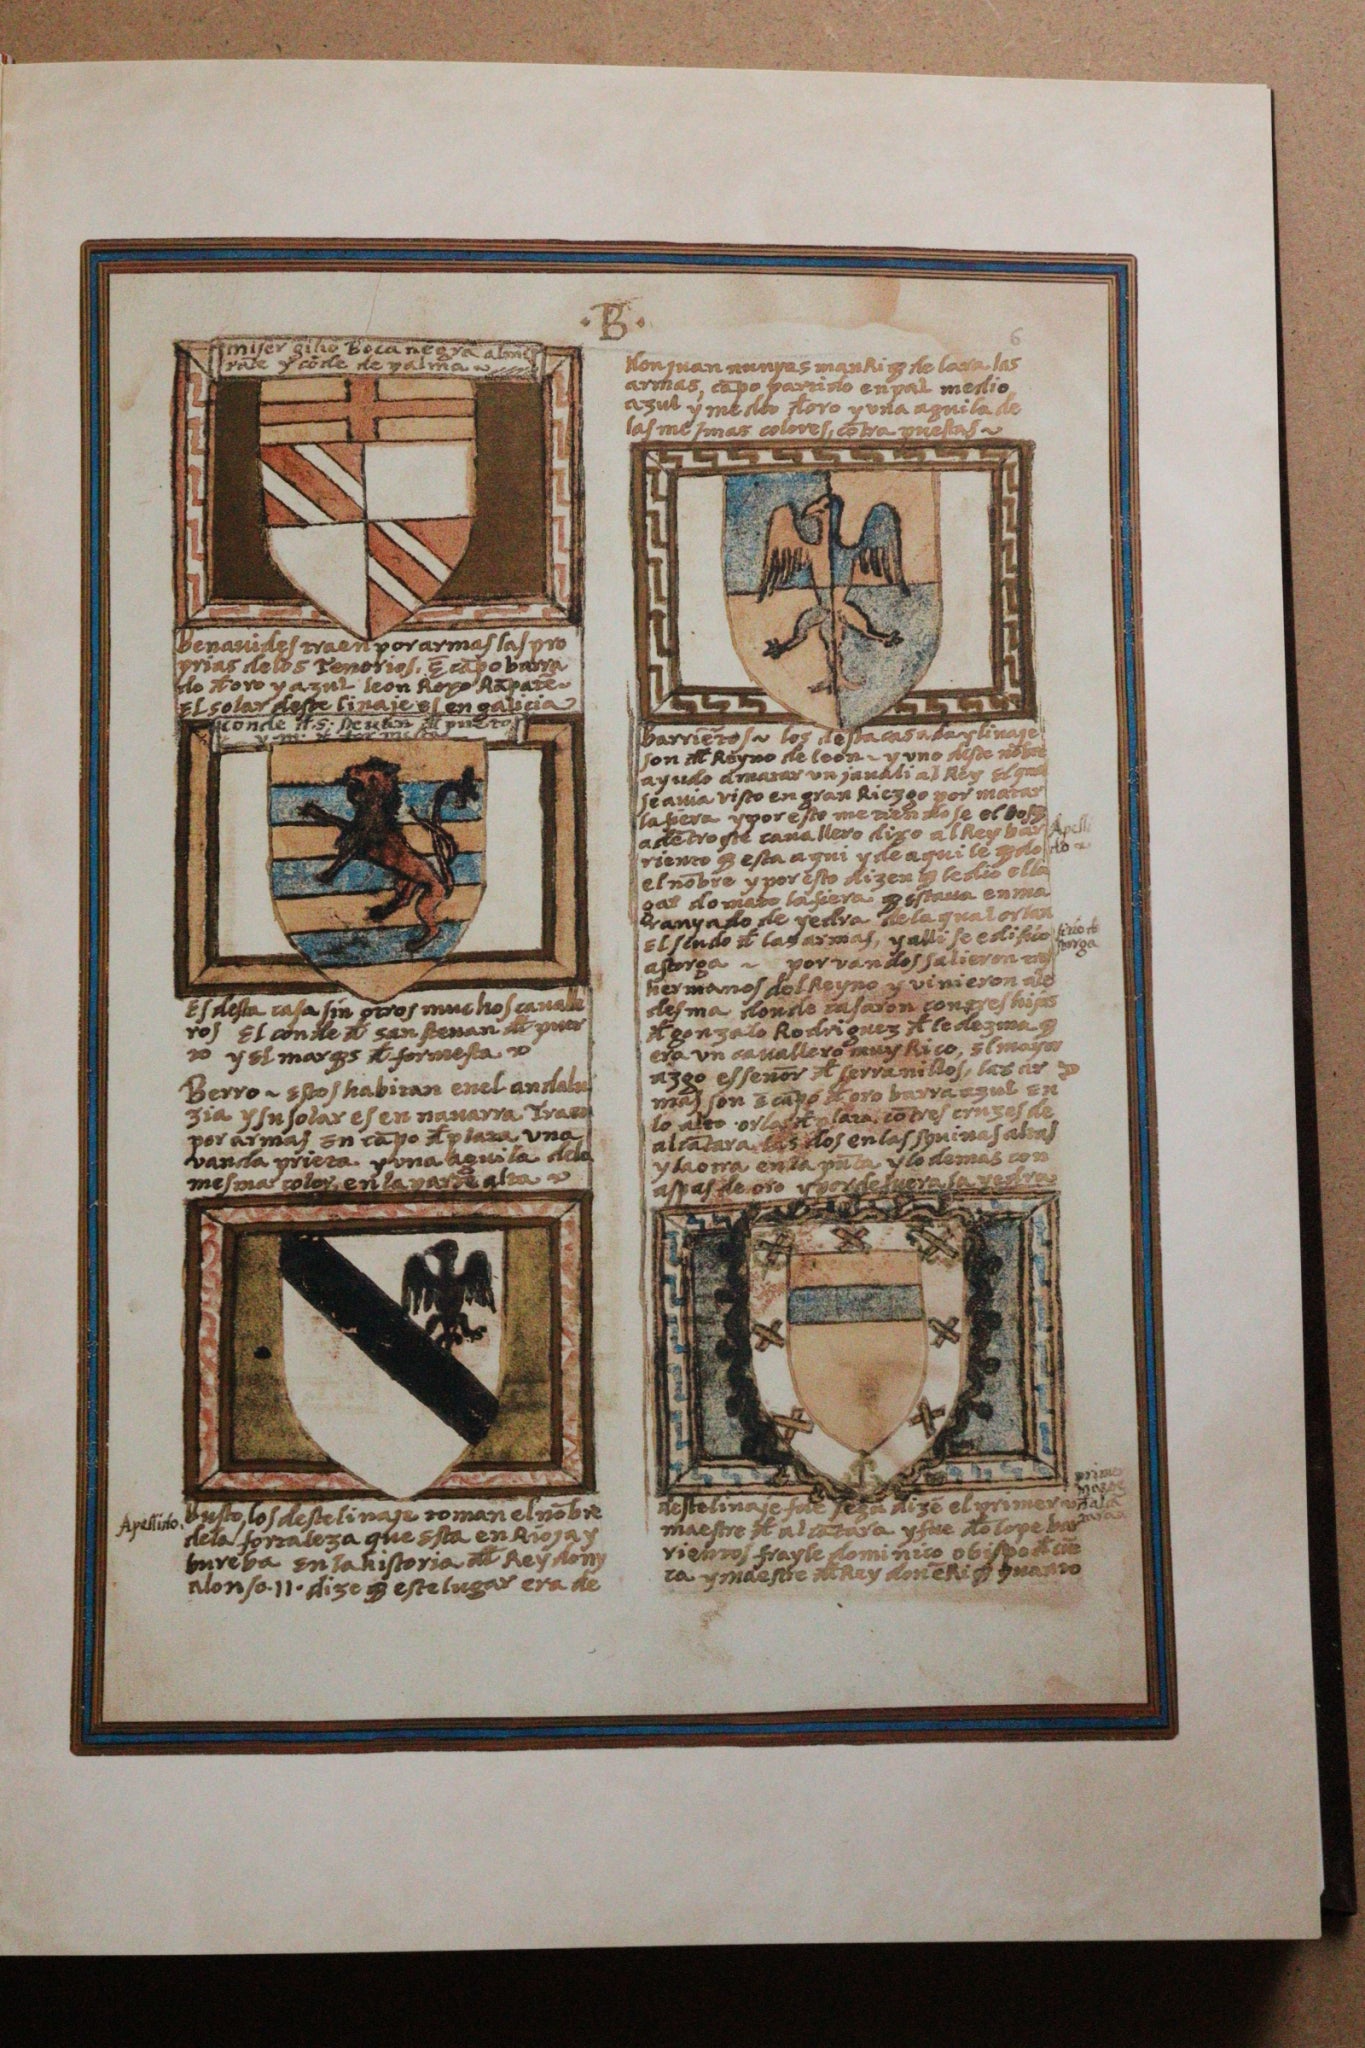 ·B·
6
miser gilio Boca negra almi
rāte y cōde de palma
benauides traen por armas las pro
prias de los Tenorios. ē cāpo barra
do đ oro y azul leon Roxo Rāpāte
El solar deste linaje es en galicia
conde đ s. steuan đl puerto
y m. đ formesta
Es desta casa sin otros muchos caualle
ros El conde đ san steuan đl puer
to y El marqs đ formesta
Berro ~ estos habitan enel andalu
zia y su solar es en nauarra. Traen
por armas En cāpo đ plata vna
vanda prieta y vna aguila dela
mesma color en la parte alta
Apellido.
busto, los deste linaje toman el nōbre
dela fortaleza que esta en Rioja y
bureba en la historia đl Rey don
alonso .11. dize q este lugar era de
don juan nunyes manRiq de lara las
armas, cāpo partido en pal medio
azul y medio đ oro y vna aguila de
las mesmas colores, cōtra puestas ~
barriētos ~ los desta casa y linaje
son đl Reyno de leon ~ y vno deste nōbre
ayudo a matar vn jauali al Rey El qual
se auia visto en gran Riezgo por matar
la fiera y por esto metiendose el bosq
adētro este cauallero dixo al Rey bar
riento q esta aqui y de aqui le qdo
el nōbre y por esto dizen q le dio el lu
gar do mato la fiera q estaua en ma
ranyado de yedra de la qual orlan
El scudo đ las armas, y alli se edifico
astorga ~ por vandos salieron tres
hermanos del Reyno y vinieron a le
desma donde casaron con tres hijas
đ gonzalo Rodriguez đ ledezma q
era vn cauallero muy Rico, El mayor
azgo es senor đ serranillos, las ar
mas son ē cāpo đ oro barra azul en
lo alto orla đ plata cō tres cruzes de
alcātara las dos en las squinas altas
y la otra en la pūta y lo demas con
aspas de oro y por defuera la yedra
Apelli
do
sitio đ
storga
deste linaje fue segū dizē el primer
maestre đ alcātara y fue đ lope bar
rientos frayle dominico obispo đ cuē
ca y maestre đl Rey don ēRiq quarto
primer